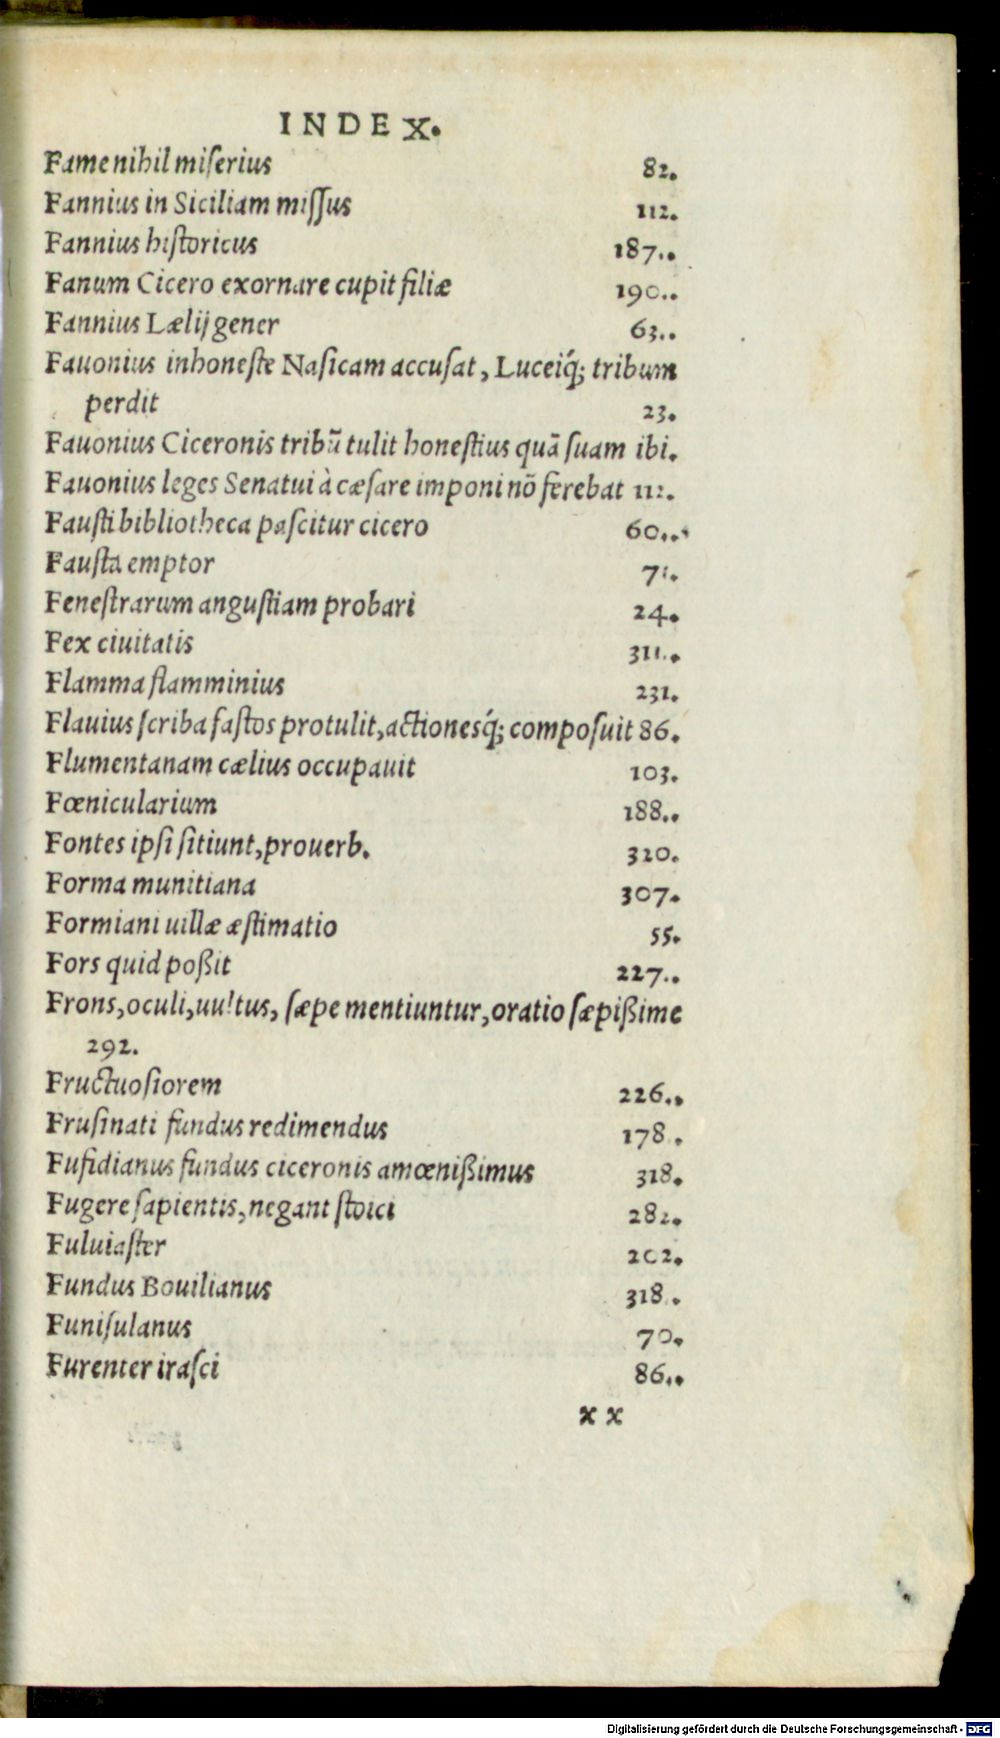 INDEX.
Fame nihil miſerius 82.
Fannius in Siciliam miſſus 112.
Fannius hiſtoricus 187..
Fanum Cicero exornare cupit filiæ 190..
Fannius Lælij gener 63..
Fauonius inhoneſte Naſicam accuſat, Luceiq́; tribum
perdit 23.
Fauonius Ciceronis tribū tulit honeſtius quā ſuam ibi.
Fauonius leges Senatui à cæſare imponi nō ferebat 111.
Fauſti bibliotheca paſcitur cicero 60...
Fauſta emptor 71.
Feneſtrarum anguſtiam probari 24.
Fex ciuitatis 311..
Flamma flamminius 231.
Flauius ſcriba faſtos protulit, actionesq́; compoſuit 86.
Flumentanam cælius occupauit 103.
Fœnicularium 188..
Fontes ipſi ſitiunt, prouerb. 320.
Forma munitiana 307.
Formiani uillæ æſtimatio 55.
Fors quid poßit 227..
Frons, oculi, uultus, ſæpe mentiuntur, oratio ſæpißime
292.
Fructuoſiorem 226..
Fruſinati fundus redimendus 178.
Fufidianus fundus ciceronis amœnißimus 318.
Fugere ſapientis, negant ſtoici 282.
Fuluiaſter 202.
Fundus Bouilianus 318.
Funiſulanus 70.
Furenter iraſci 86..
x x
Digitalisierung gefördert durch die Deutsche Forschungsgemeinschaft - DFG